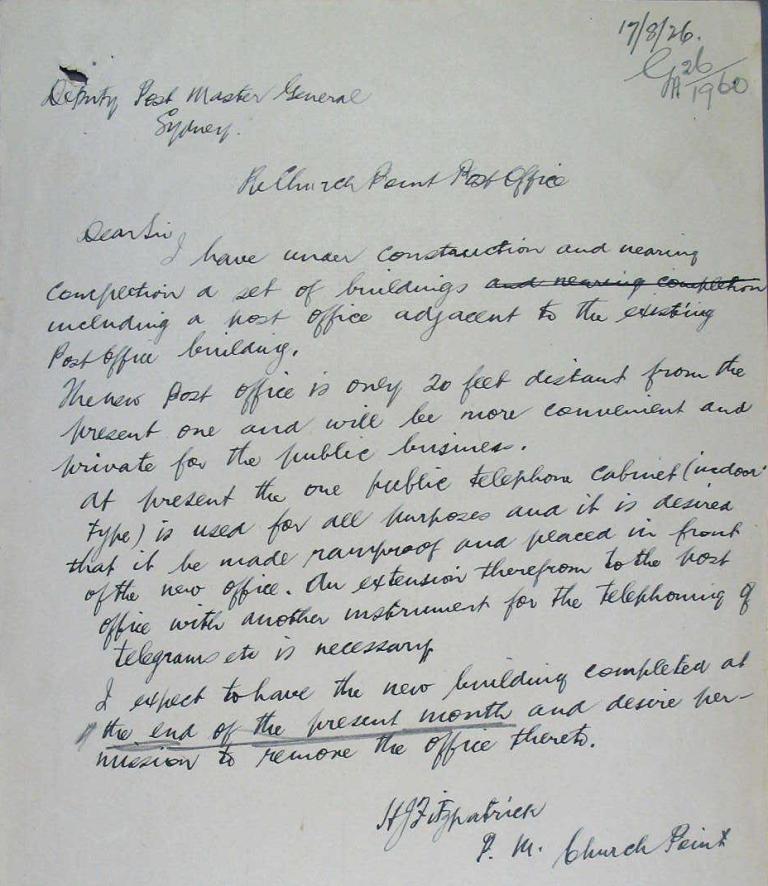 17/8/26.
G 26
A 1960
Deputy Post Master General
Sydney.
Re Church Point Post Office
Dear Sir
I have under construction and nearing
completion a set of buildings and nearing completion
including a post office adjacent to the existing
Post Office building.
The new Post office is only 20 feet distant from the
present one and will be more convenient and
private for the public business.
At present the one public telephone cabinet (indoor
type) is used for all purposes and it is desired
that it be made rainproof and placed in front
of the new office. An extension therefrom to the post
office with another instrument for the telephoning of
telegrams etc is necessary
I expect to have the new building completed at
the end of the present month and desire per-
mission to remove the office thereto.
H J Fitzpatrick
P. M. Church Point